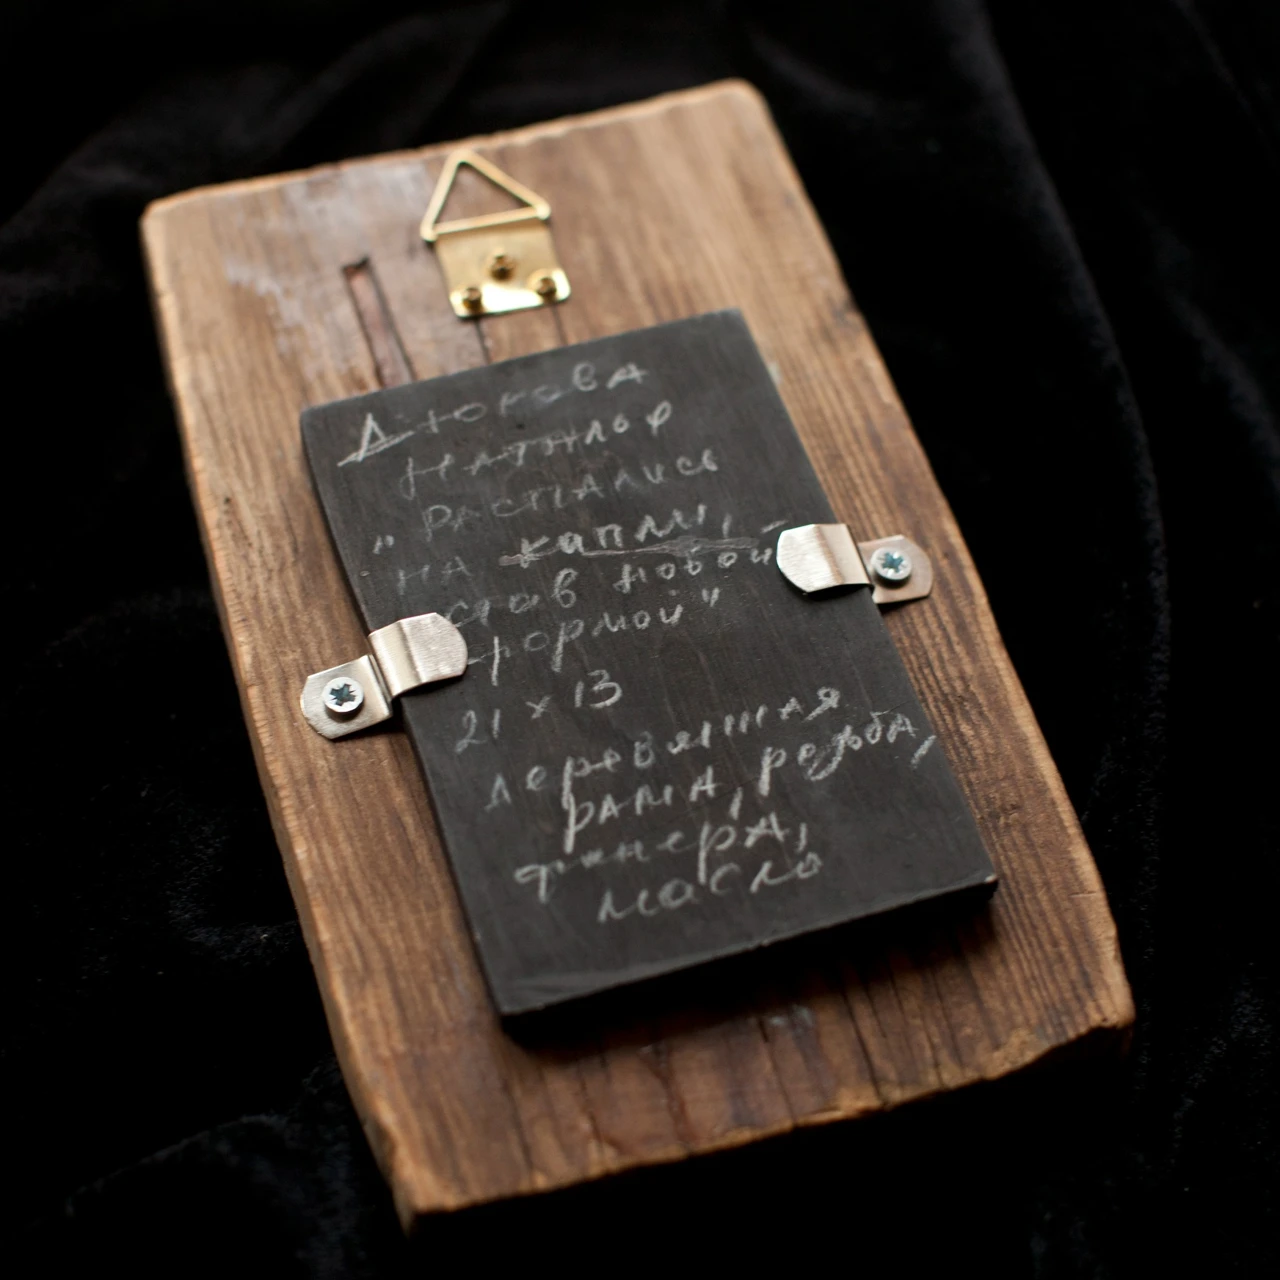 Дюкова
„ РАСПАЛИСЬ
НА капли,
став новой
формой"
21 x 13
деревянная
РАМА, резьба,
фанерА,
масло